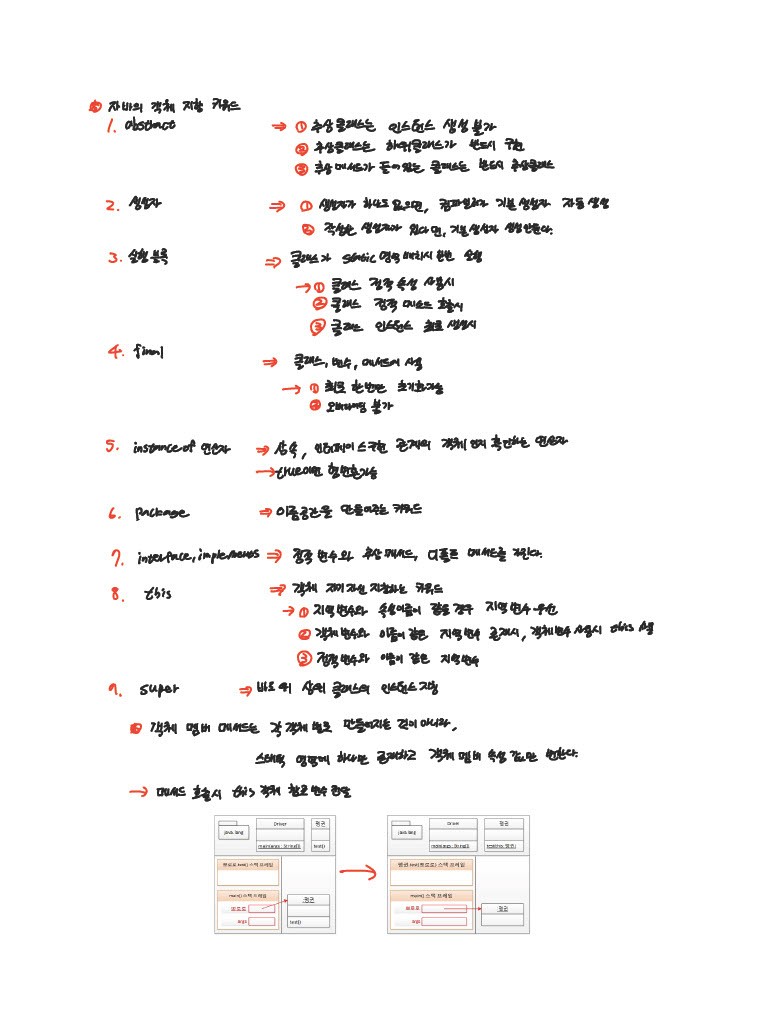 자바의 객체 지향 키워드
1. abstract ⇒ ① 추상클래스는 인스턴스 생성 불가
② 추상클래스는 하위클래스가 반드시 구현
③ 추상 메서드가 들어있는 클래스는 반드시 추상클래스
2. 생성자 ⇒ ① 생성자가 하나도 없으면, 컴파일러가 기본 생성자 자동 생성
② 작성한 생성자가 있다면, 기본 생성자 생성 안한다.
3. 실행 블록 ⇒ 클래스가 static 영역 배치시 한번 실행
→ ① 클래스 정적 속성 사용시
② 클래스 정적 메소드 호출시
③ 클래스 인스턴스 최초 생성시
4. final ⇒ 클래스, 변수, 메서드에 사용
→ ① 최초 한번만 초기화 가능
② 오버라이딩 불가
5. instance of 연산자 ⇒ 상속, 인터페이스 구현 관계의 객체인지 확인하는 연산자
→ true이면 형변환가능
6. package ⇒ 이름공간을 만들어주는 키워드
7. interface, implements ⇒ 정적 변수와 추상 메서드, 디폴트 메서드를 가진다.
8. this ⇒ 객체 자기 자신 지칭하는 키워드
→ ① 지역 변수와 속성이름이 같을 경우 지역변수 우선
② 객체 변수와 이름이 같은 지역 변수 존재시, 객체변수 사용시 this 사용
③ 정적 변수와 이름이 같은 지역 변수
9. super ⇒ 바로 위 상위 클래스의 인스턴스 지칭
객체 멤버 메서드는 각 객체 별로 만들어지는 것이 아니라,
스태틱 영역에 하나만 존재하고 객체 멤버 속성 값만 변한다.
→ 메서드 호출시 this 객체 참조 변수 전달
java.lang
Driver
펭귄
main(args : String[])
test()
test() 스택 프레임
main() 스택 프레임
뽀로로
args
:펭귄
test()
java.lang
Driver
펭귄
main(args : String[])
test(this: 펭귄)
펭귄.test(뽀로로) 스택 프레임
main() 스택 프레임
뽀로로
args
:펭귄